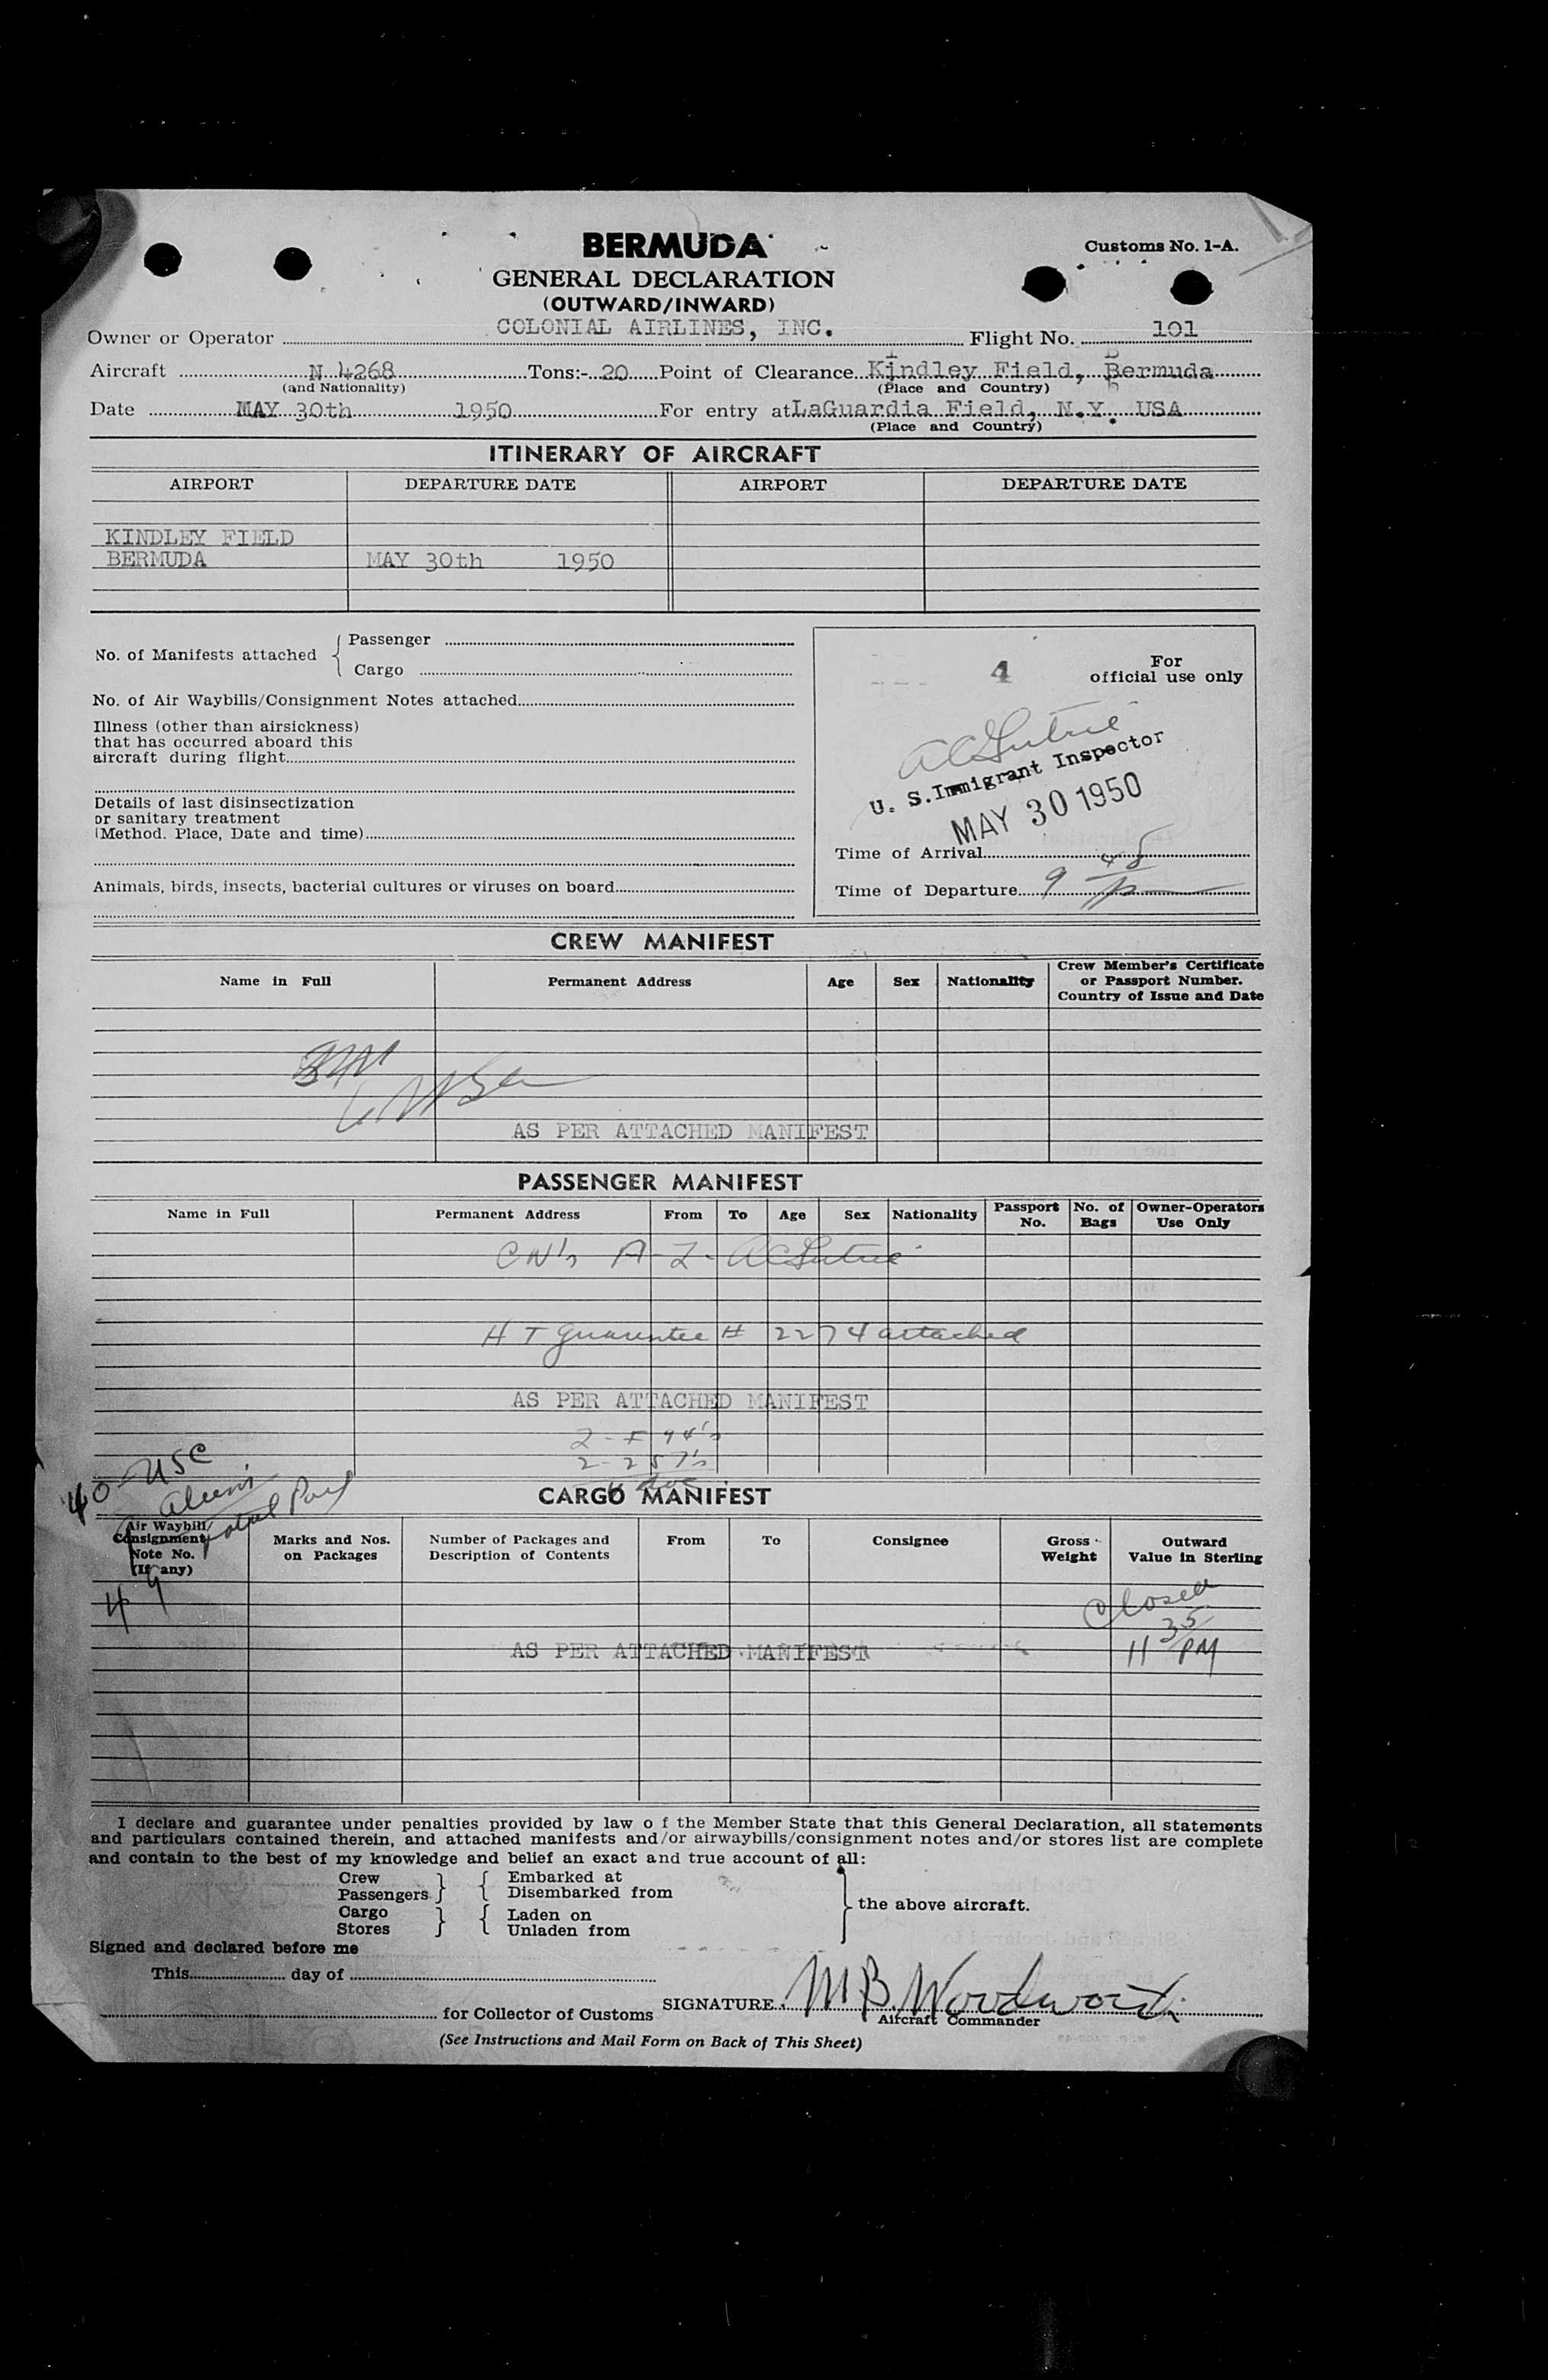 BERMUDA
Customs No. 1-A.
GENERAL DECLARATION
(OUTWARD/INWARD)
Owner or Operator COLONIAL AIRLINES, INC. Flight No. 101
Aircraft N 4268 Tons:- 20 Point of Clearance Kindley Field, Bermuda
(and Nationality) (Place and Country)
Date MAY 30th 1950 For entry at LaGuardia Field, N.Y. USA
(Place and Country)
ITINERARY OF AIRCRAFT
AIRPORT DEPARTURE DATE AIRPORT DEPARTURE DATE
KINDLEY FIELD
BERMUDA MAY 30th 1950
No. of Manifests attached { Passenger
Cargo
No. of Air Waybills/Consignment Notes attached
Illness (other than airsickness)
that has occurred aboard this
aircraft during flight
Details of last disinsectization
or sanitary treatment
(Method. Place, Date and time)
Animals, birds, insects, bacterial cultures or viruses on board
4
For
official use only
U. S. Immigrant Inspector
MAY 30 1950
Time of Arrival
Time of Departure 9 45 p
CREW MANIFEST
Name in Full Permanent Address Age Sex Nationality Crew Member's Certificate
or Passport Number.
Country of Issue and Date
AS PER ATTACHED MANIFEST
PASSENGER MANIFEST
Name in Full Permanent Address From To Age Sex Nationality Passport No. No. of Bags Owner-Operators Use Only
CN's A-Z-
H T guarantee # 2274 attached
AS PER ATTACHED MANIFEST
2 - 2 57's
40 USC
CARGO MANIFEST
Air Waybill/
Consignment
Note No.
(If any)
Marks and Nos.
on Packages
Number of Packages and
Description of Contents
From To Consignee
Gross
Weight
Outward
Value in Sterling
Closed
11 35 PM
AS PER ATTACHED MANIFEST
I declare and guarantee under penalties provided by law o f the Member State that this General Declaration, all statements
and particulars contained therein, and attached manifests and/or airwaybills/consignment notes and/or stores list are complete
and contain to the best of my knowledge and belief an exact and true account of all:
Crew } { Embarked at
Passengers Disembarked from
} the above aircraft.
Cargo } { Laden on
Stores Unladen from
Signed and declared before me
This day of
for Collector of Customs SIGNATURE M B. Woodworth
Aircraft Commander
(See Instructions and Mail Form on Back of This Sheet)